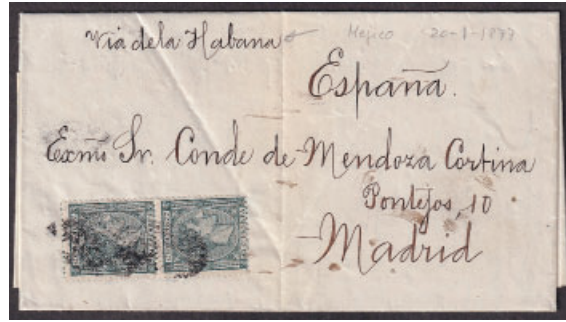 Via dela Habana
Mejico 20-1-1877
España.
Exmũ Sr. Conde de Mendoza Cortina
Pontejos, 10
Madrid